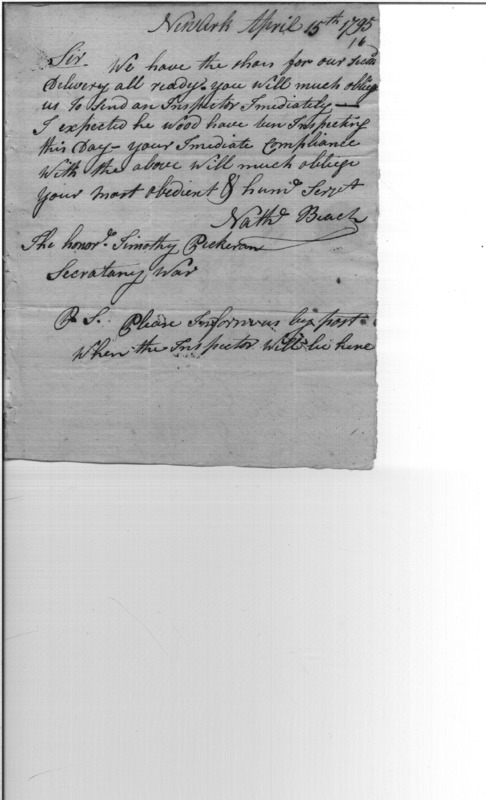 Newark April 15th 1795
16
Sir. We have the shoes for our
Delivery all ready - you will much oblige
us to send an Inspector Imediately -
I expected he wood have ben Inspecting
this Day - your Imediate Compliance
with the above will much obliege
your most obedient & humle Servt
Nathl Beach
The honorle Timothy Pickeran
Secratany War
P S. Please Inform us by post
when the Inspector will be here